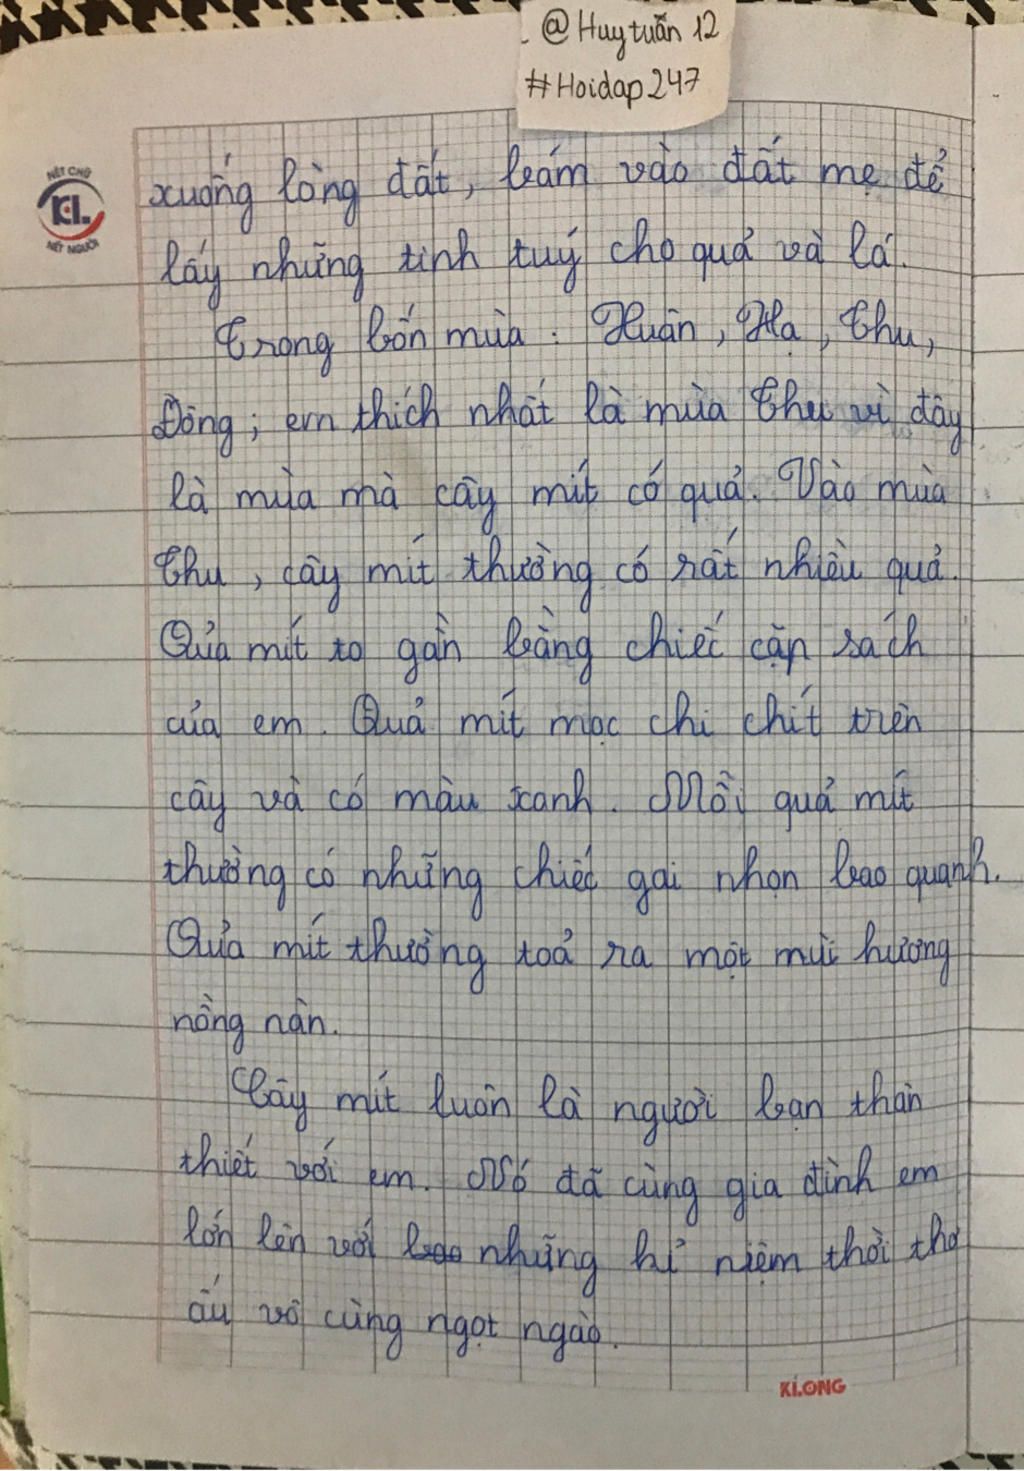 @Huytuấn 12
#Hoidap247
NÉT CHỮ
KL
NẾT NGƯỜI
xuống lòng đất, bám vào đất mẹ để
lấy những tinh tuý cho quả và lá.
Trong bốn mùa : Xuân, Hạ, Thu,
Đông; em thích nhất là mùa Thu vì đây
là mùa mà cây mít có quả. Vào mùa
Thu, cây mít thường có rất nhiều quả.
Qủa mít to gần bằng chiếc cặp sách
của em. Quả mít mọc chi chít trên
cây và có màu xanh. Mỗi quả mít
thường có những chiếc gai nhọn bao quanh.
Qủa mít thường toả ra một mùi hương
nồng nàn.
Cây mít luôn là người bạn thân
thiết với em. Nó đã cùng gia đình em
lớn lên với bao những kỉ niệm thời thơ
ấu vô cùng ngọt ngào.
KLONG